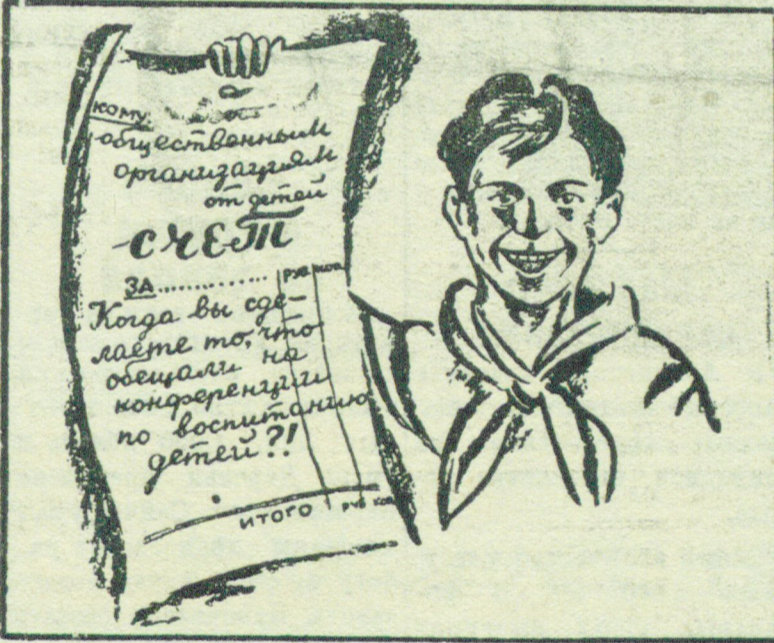 кому
общественным
организациям
от детей
СЧЕТ
ЗА............ РУБ КОП.
Когда вы сде-
лаете то, что
обещали на
конференции
по воспитанию
детей?!
ИТОГО РУБ КОП